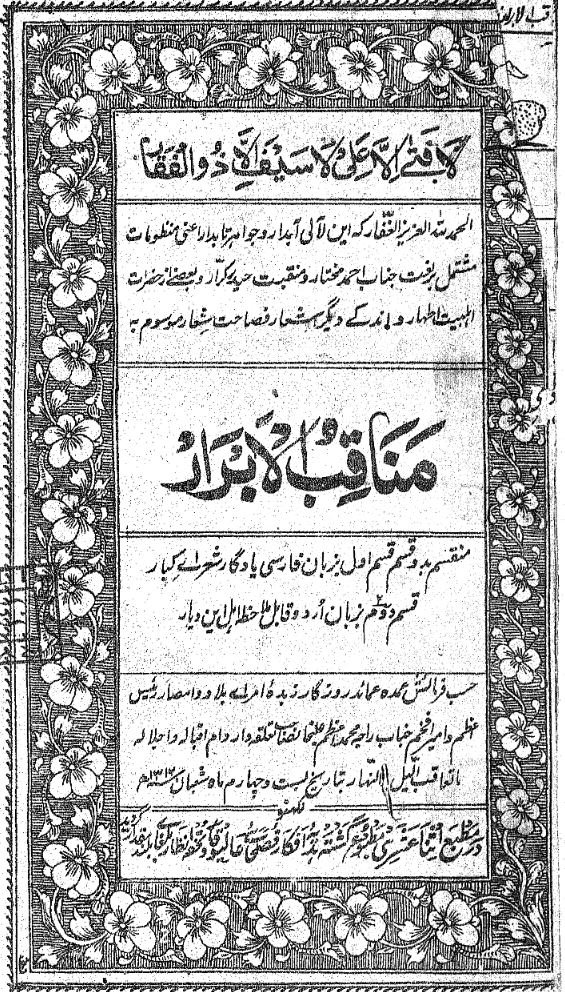 لا فتے الا علی لا سیف الا ذوالفقار
الحمد للہ العزیز الغفار کہ این لآلی آبدار و جواہر تابدار اعنی منظومات
مشتمل بر نعت جناب احمد مختار و منقبت حیدر کرار و بعضے از حضرات
اہلبیت اطہار و اندکے دیگر اشعار فصاحت شعار موسوم بہ
مَنَاقِبُ الْاَبْرَارْ
منقسم بدو قسم قسم اول بزبان فارسی یادگار شعراے کبار
قسم دوئم بزبان اُردو قابل ملاحظہ اہل این دیار
حسب فرمائش عمدہ عمائد روزگار زبدہ امراے بلاد و امصار رئیس
عظم و امیر افخم جناب راجہ محمد اعظم علیخانصاحب تعلقہ دار دام اقبالہ و اجلالہ
ما تعاقب اللیل النہار بتاریخ بست و چہارم ماہ شعبان ۱۳۱۲ھ
لکھنؤ
در مطبع اثنا عشری مطبوع گشتہ